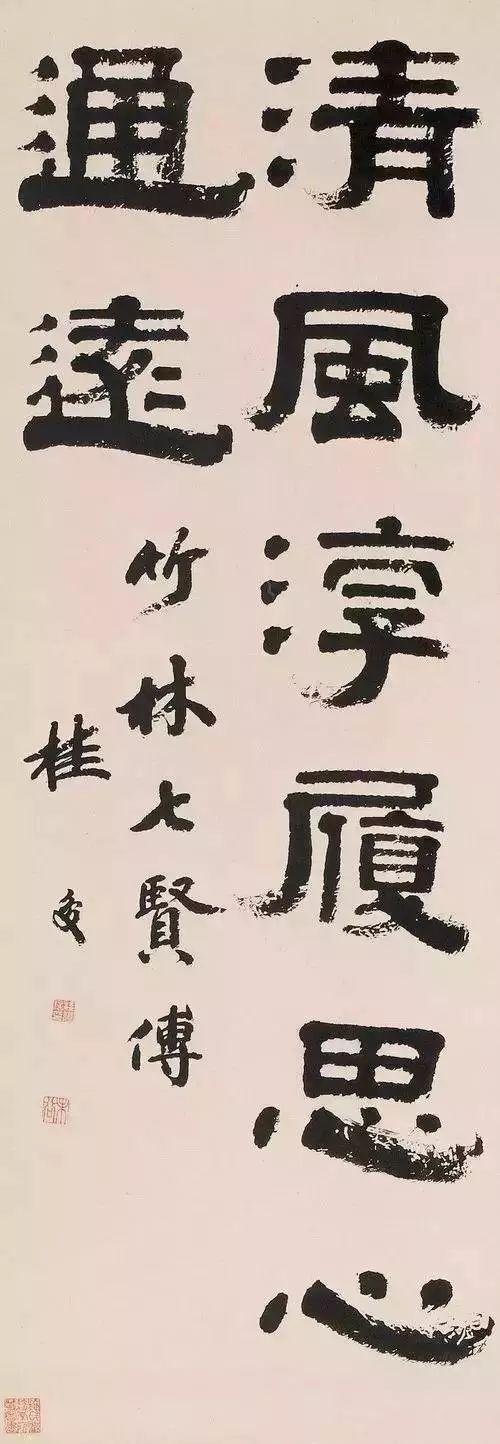 清風淳履思心
通遠
竹林七賢傳
桂馥